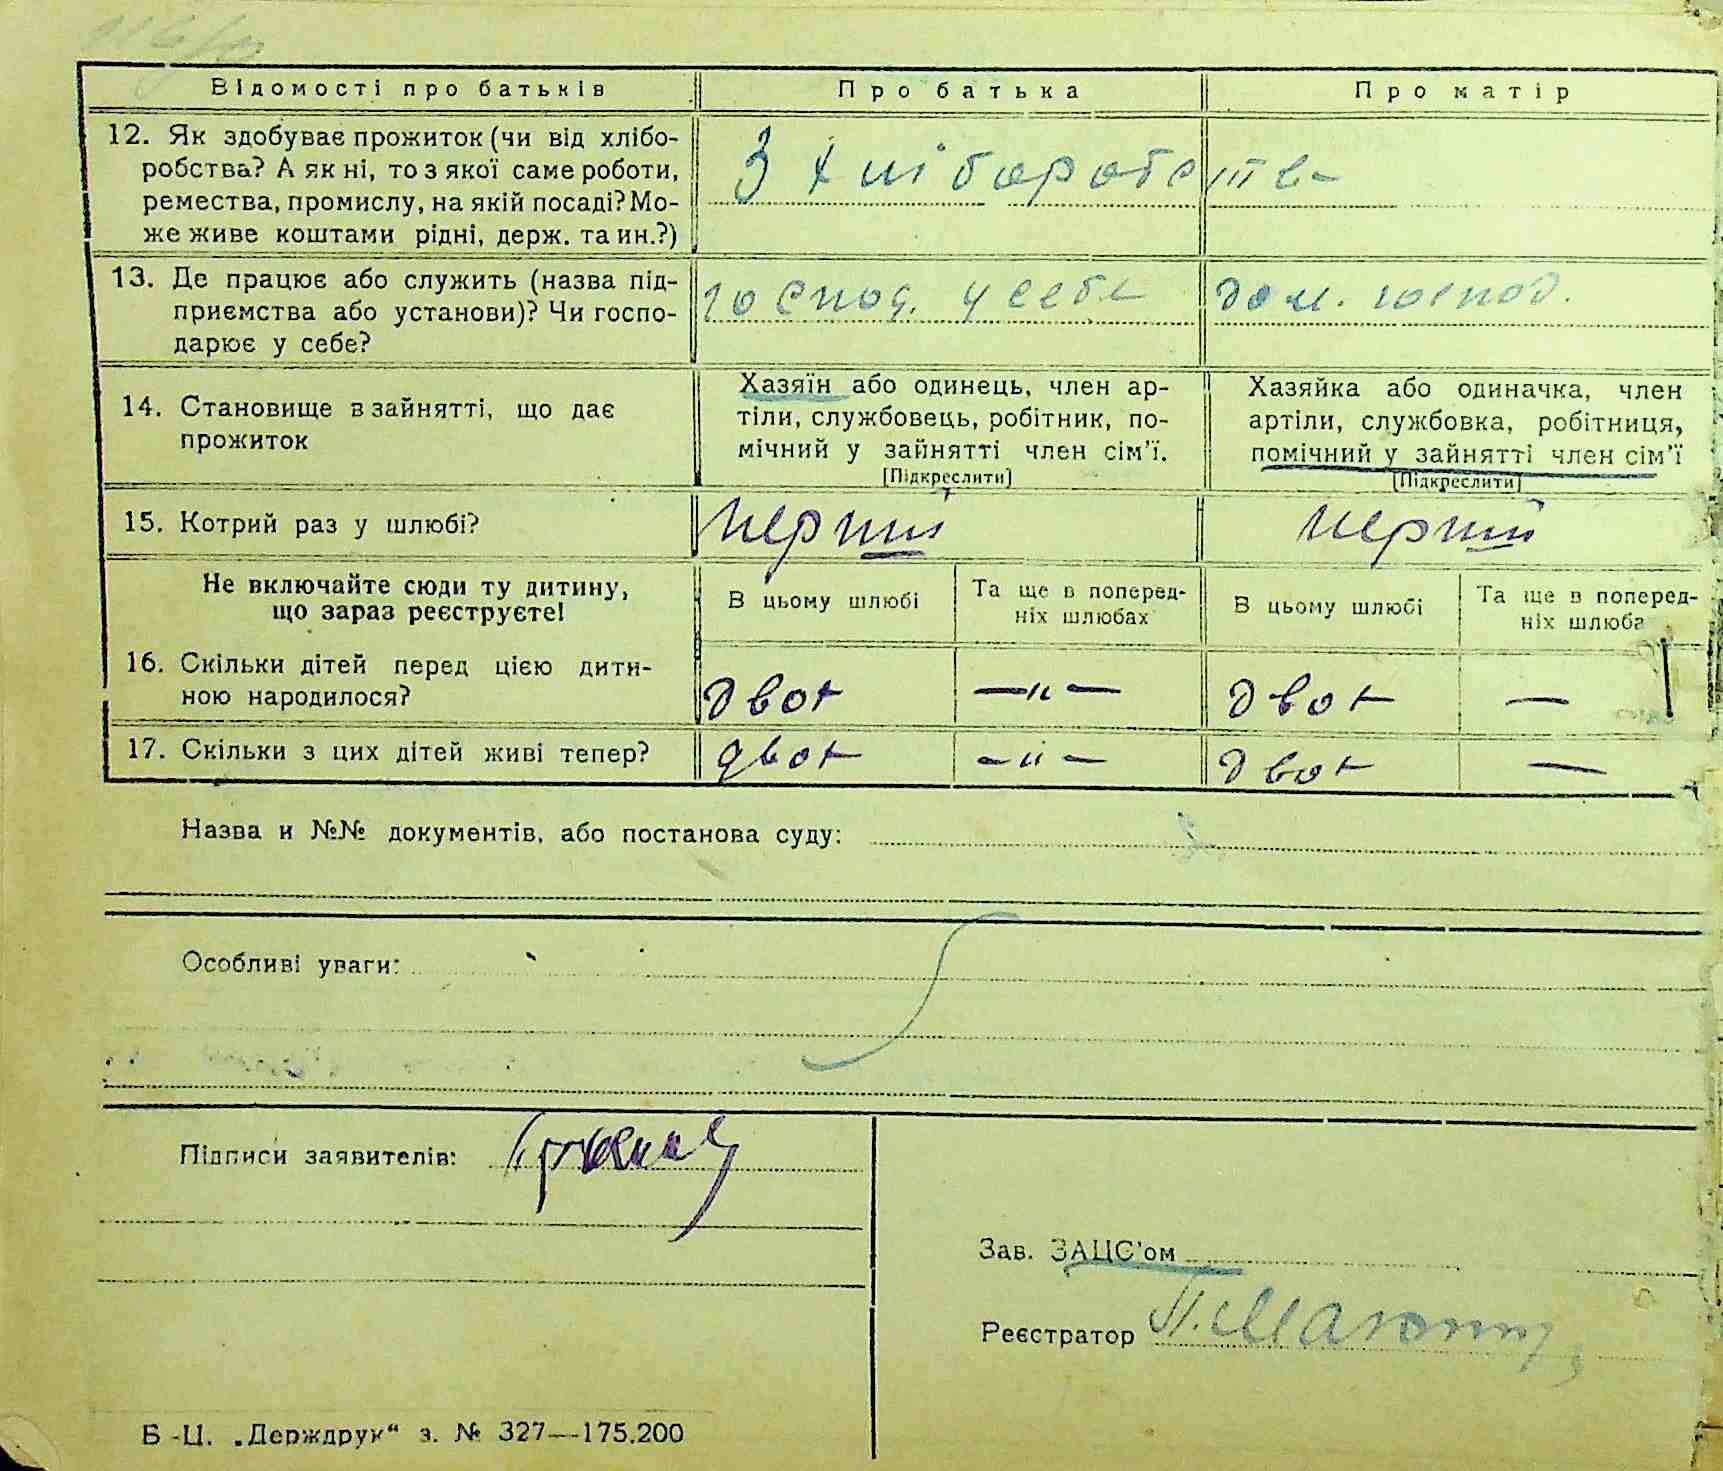 Відомості про батьків
Про батька
Про матір
12. Як здобуває прожиток (чи від хлібо-
робства? А як ні, то з якої саме роботи,
ремества, промислу, на якій посаді? Мо-
же живе коштами рідні, держ. та ин.?)
З хліборобства
13. Де працює або служить (назва під-
приємства або установи)? Чи госпо-
дарює у себе?
господ. у себе
дом. господ.
14. Становище в зайнятті, що дає
прожиток
Хазяїн або одинець, член ар-
тіли, службовець, робітник, по-
мічний у зайнятті член сім'ї.
[Підкреслити]
Хазяйка або одиначка, член
артіли, службовка, робітниця,
помічний у зайнятті член сім'ї
[Підкреслити]
15. Котрий раз у шлюбі?
перший
перший
Не включайте сюди ту дитину,
що зараз реєструєте!
В цьому шлюбі
Та ще в поперед-
ніх шлюбах
В цьому шлюбі
Та ще в поперед-
ніх шлюба
16. Скільки дітей перед цією дити-
ною народилося?
двох
—"—
двох
—
17. Скільки з цих дітей живі тепер?
двох
—"—
двох
—
Назва и №№ документів, або постанова суду:
Особливі уваги:
Підписи заявителів:
Зав. ЗАЦС'ом
Реєстратор
Б-Ц. „Держдрук“ з. № 327—175.200